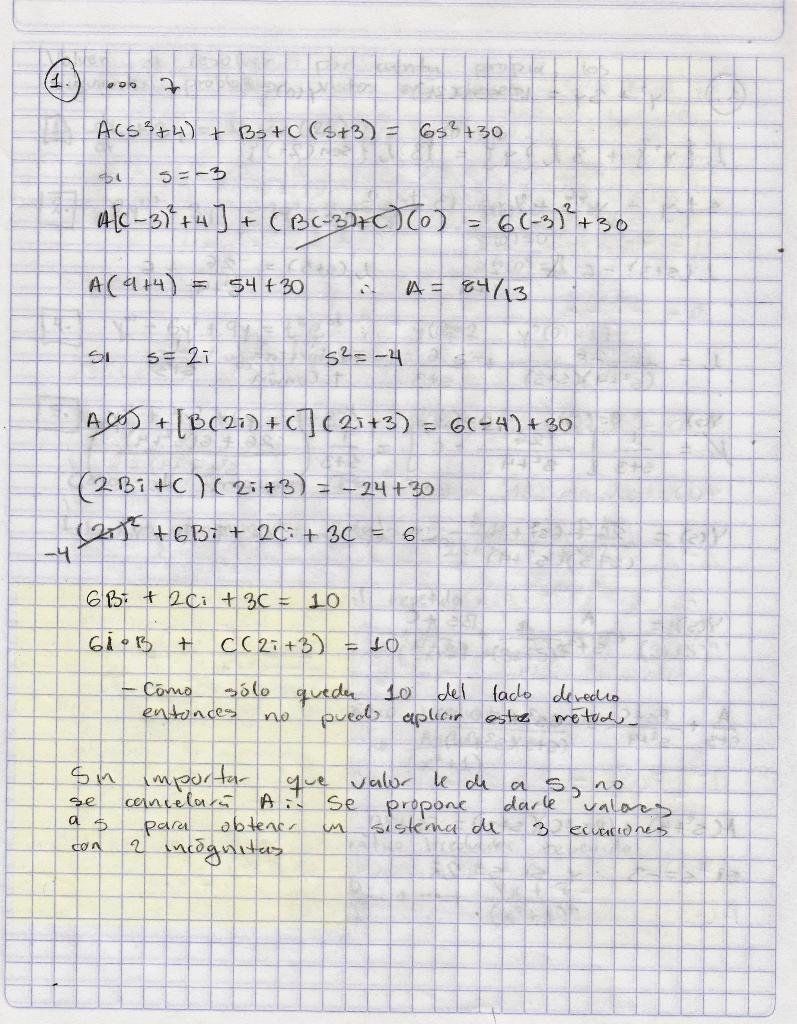 1. ... ↴
A(s³+4) + Bs+C(s+3) = 6s²+30
si s=-3
A[(-3)²+4] + (B(-3)+C)(0) = 6(-3)²+30
A(9+4) = 54+30 ∴ A = 84/13
si s=2i s²=-4
A(0) + [B(2i)+C](2i+3) = 6(-4)+30
(2Bi+C)(2i+3) = -24+30
-4 (2i)² + 6Bi + 2Ci + 3C = 6
6Bi + 2Ci + 3C = 10
6i•B + C(2i+3) = 10
- Cómo sólo queda 10 del lado derecho
entonces no puedo aplicar este método-
Sin importar que valor le de a s, no
se cancelará A ∴ Se propone darle valores
a s para obtener un sistema de 3 ecuaciones
con 2 incógnitas